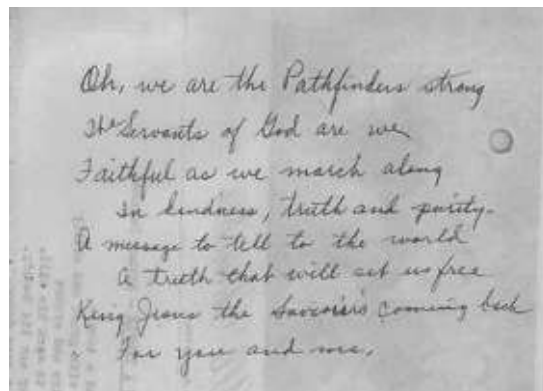 Oh, we are the Pathfinders strong
The Servants of God are we
Faithful as we march along
In kindness, truth and purity.
A message to tell to the world
A truth that will set us free
King Jesus the Saviour's coming back
For you and me,